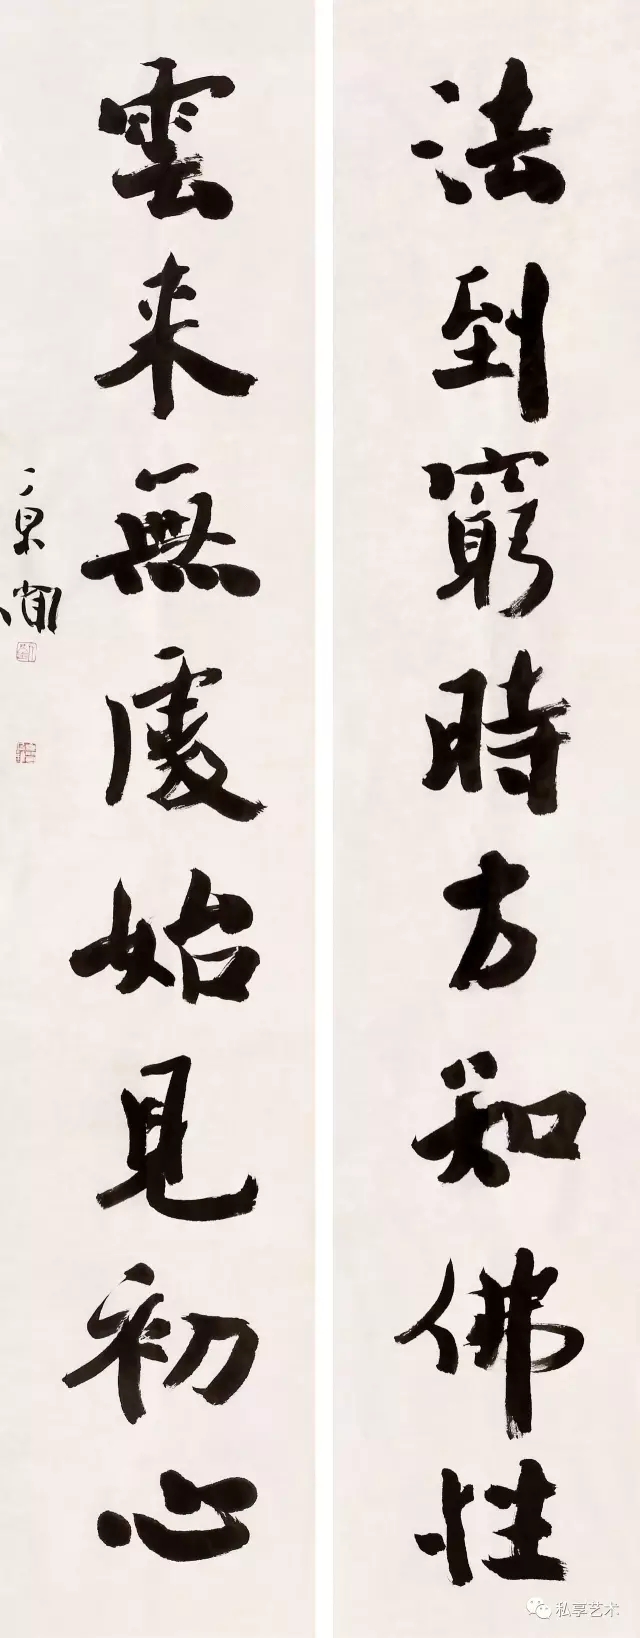 法到窮時方知佛性
雲来無處始見初心
私享艺术